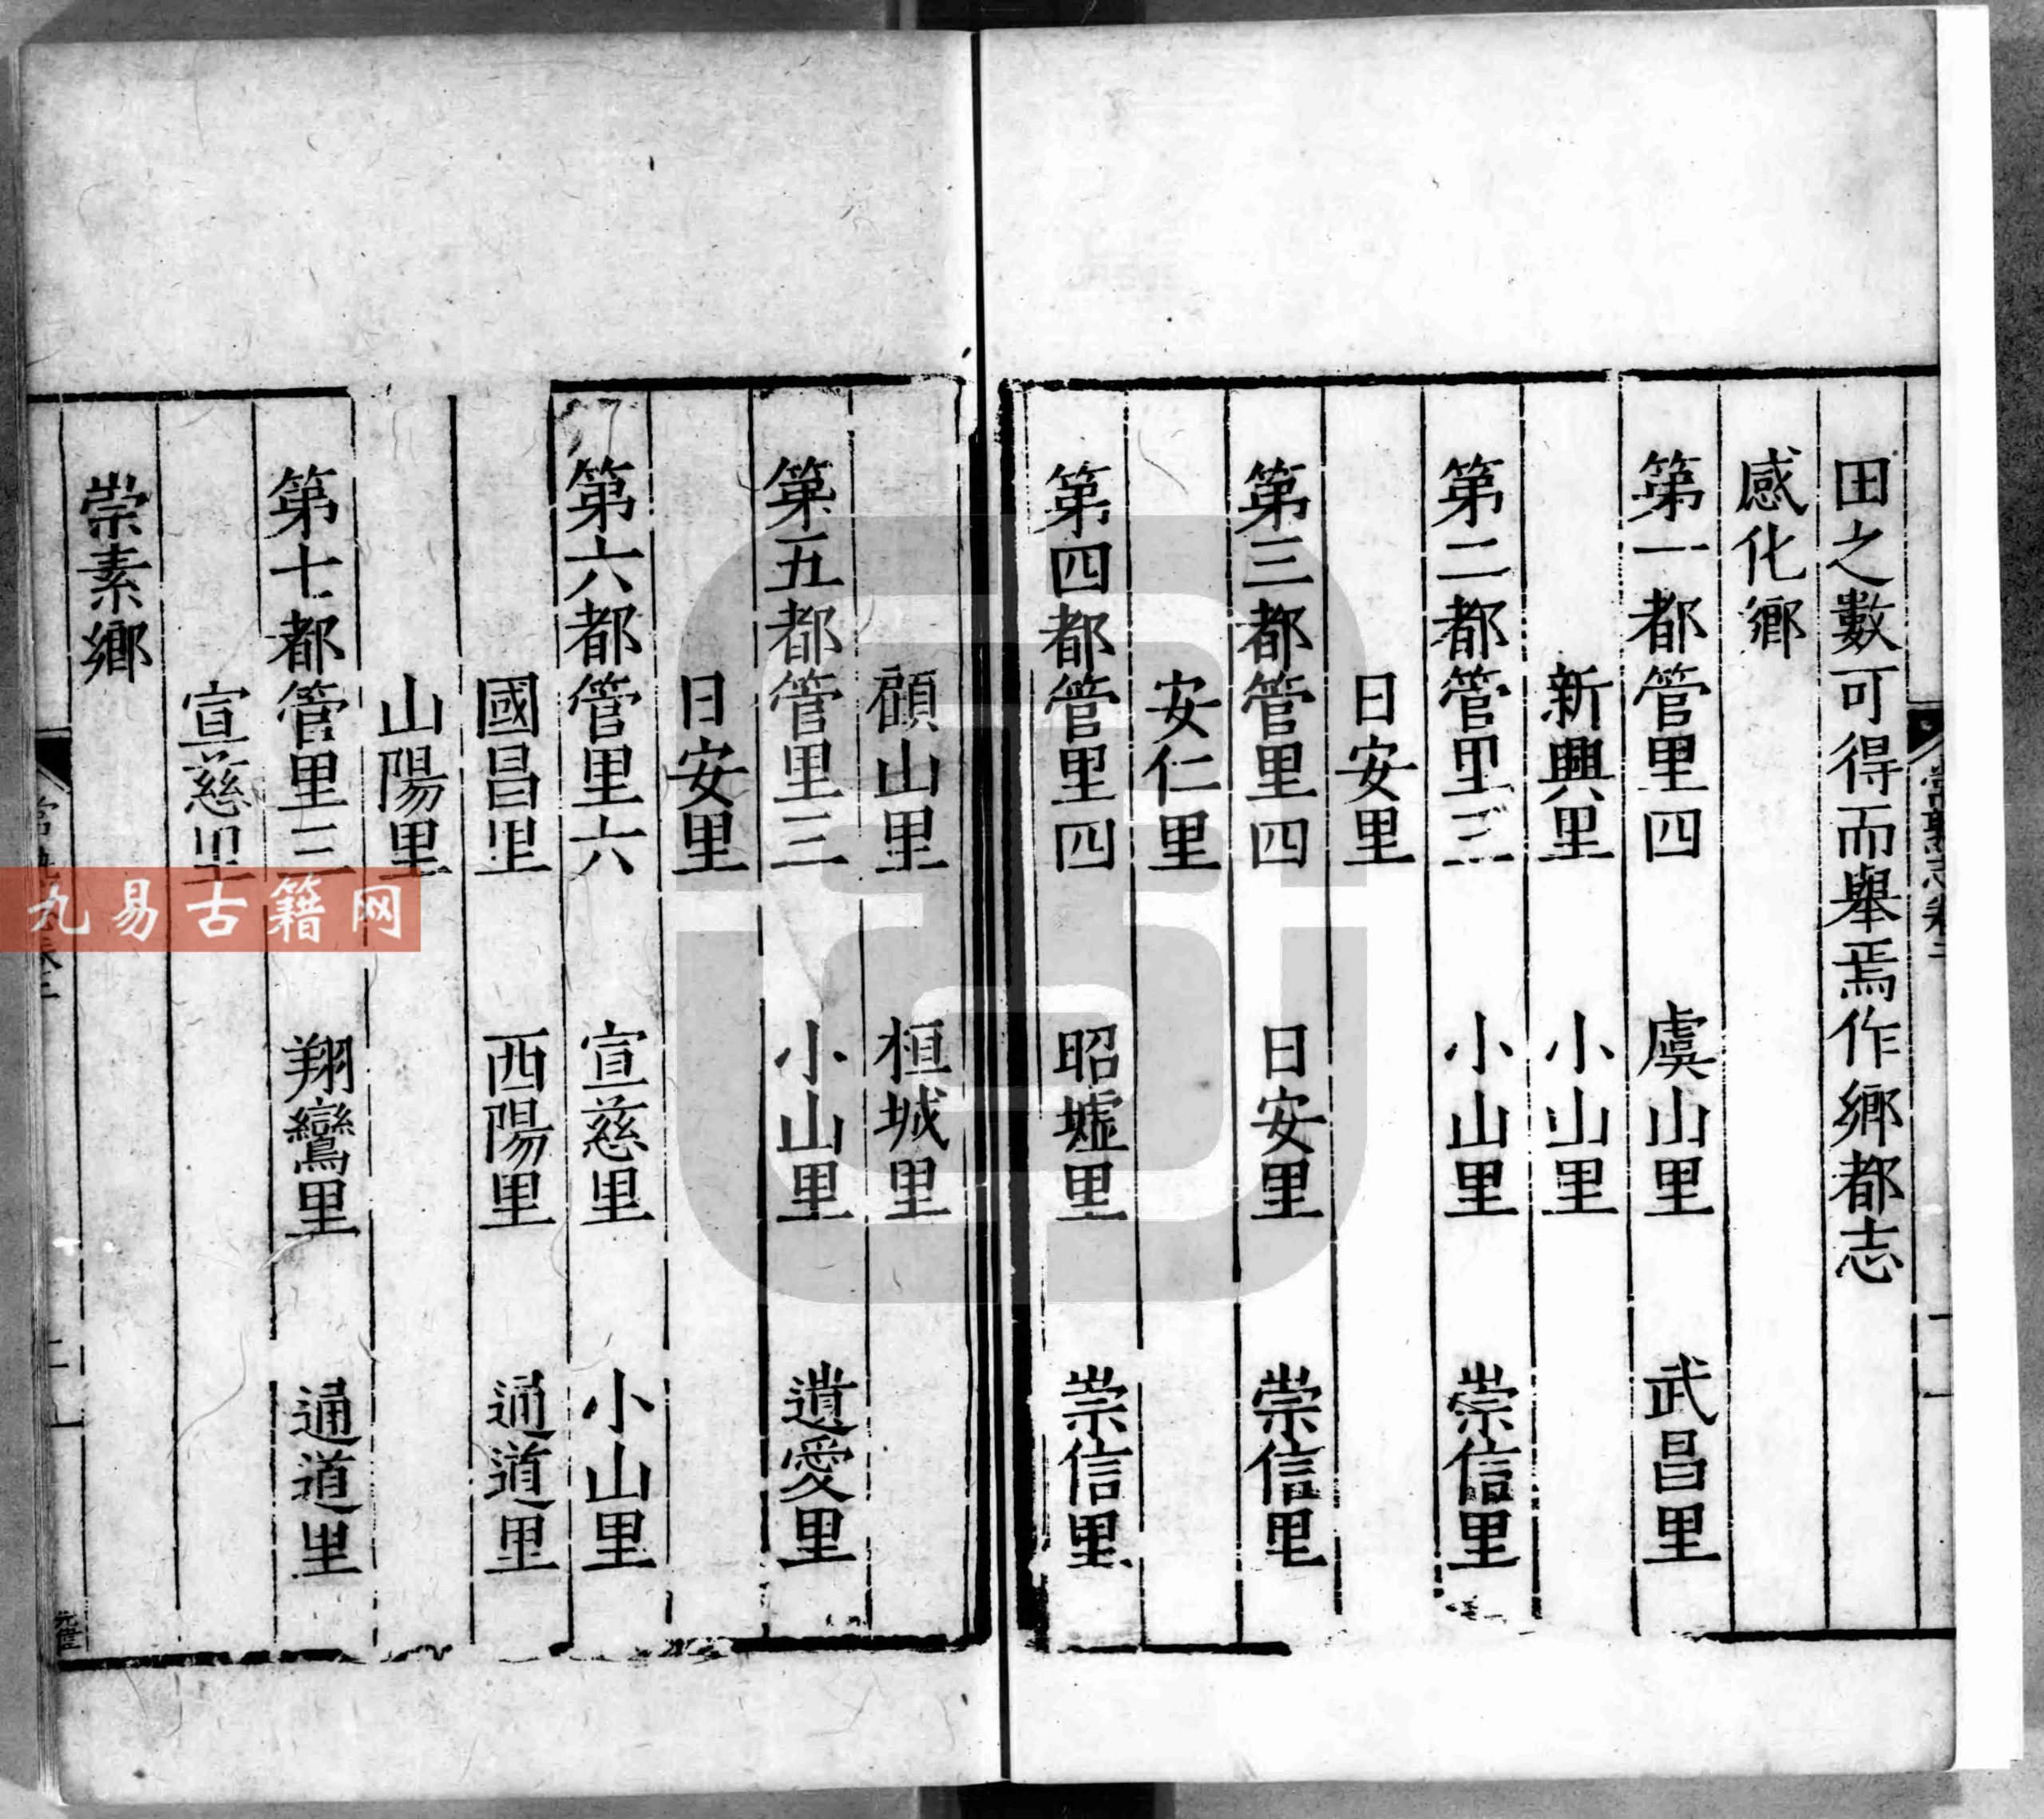 田之數可得而舉焉作鄉都志
感化鄉
第一都管里四 虞山里 武昌里
新興里 小山里
第二都管里三 小山里 崇信里
日安里
第三都管里四 日安里 崇信里
安仁里
第四都管里四 昭墟里 崇信里
頋山里 桓城里
第五都管里三 小山里 遺愛里
日安里
第六都管里六 宣慈里 小山里
國昌里 西陽里 通道里
山陽里
第七都管里三 翔鸞里 通道里
宣慈里
崇素鄉
九易古籍网